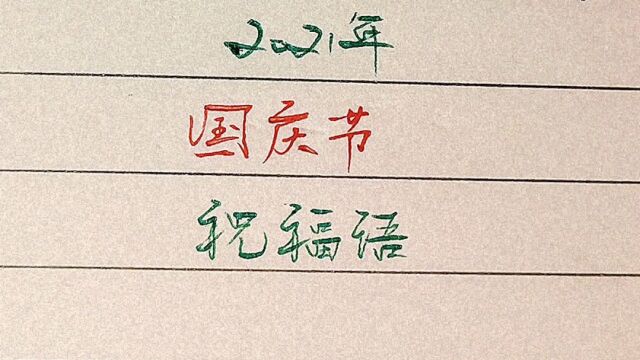 2021年
国庆节
祝福语